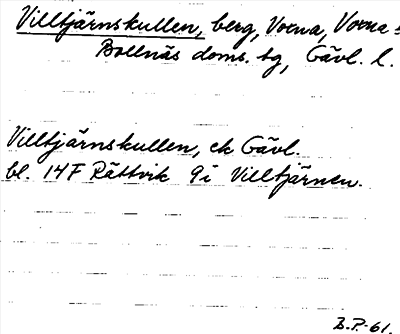 Villtjärnskullen, berg, Voxna, Voxna s
Bollnäs doms. tg, Gävl. l.
Villtjärnskullen, ek Gävl.
bl. 14F Rättvik 9i Villtjärnen.
B.P.-61.